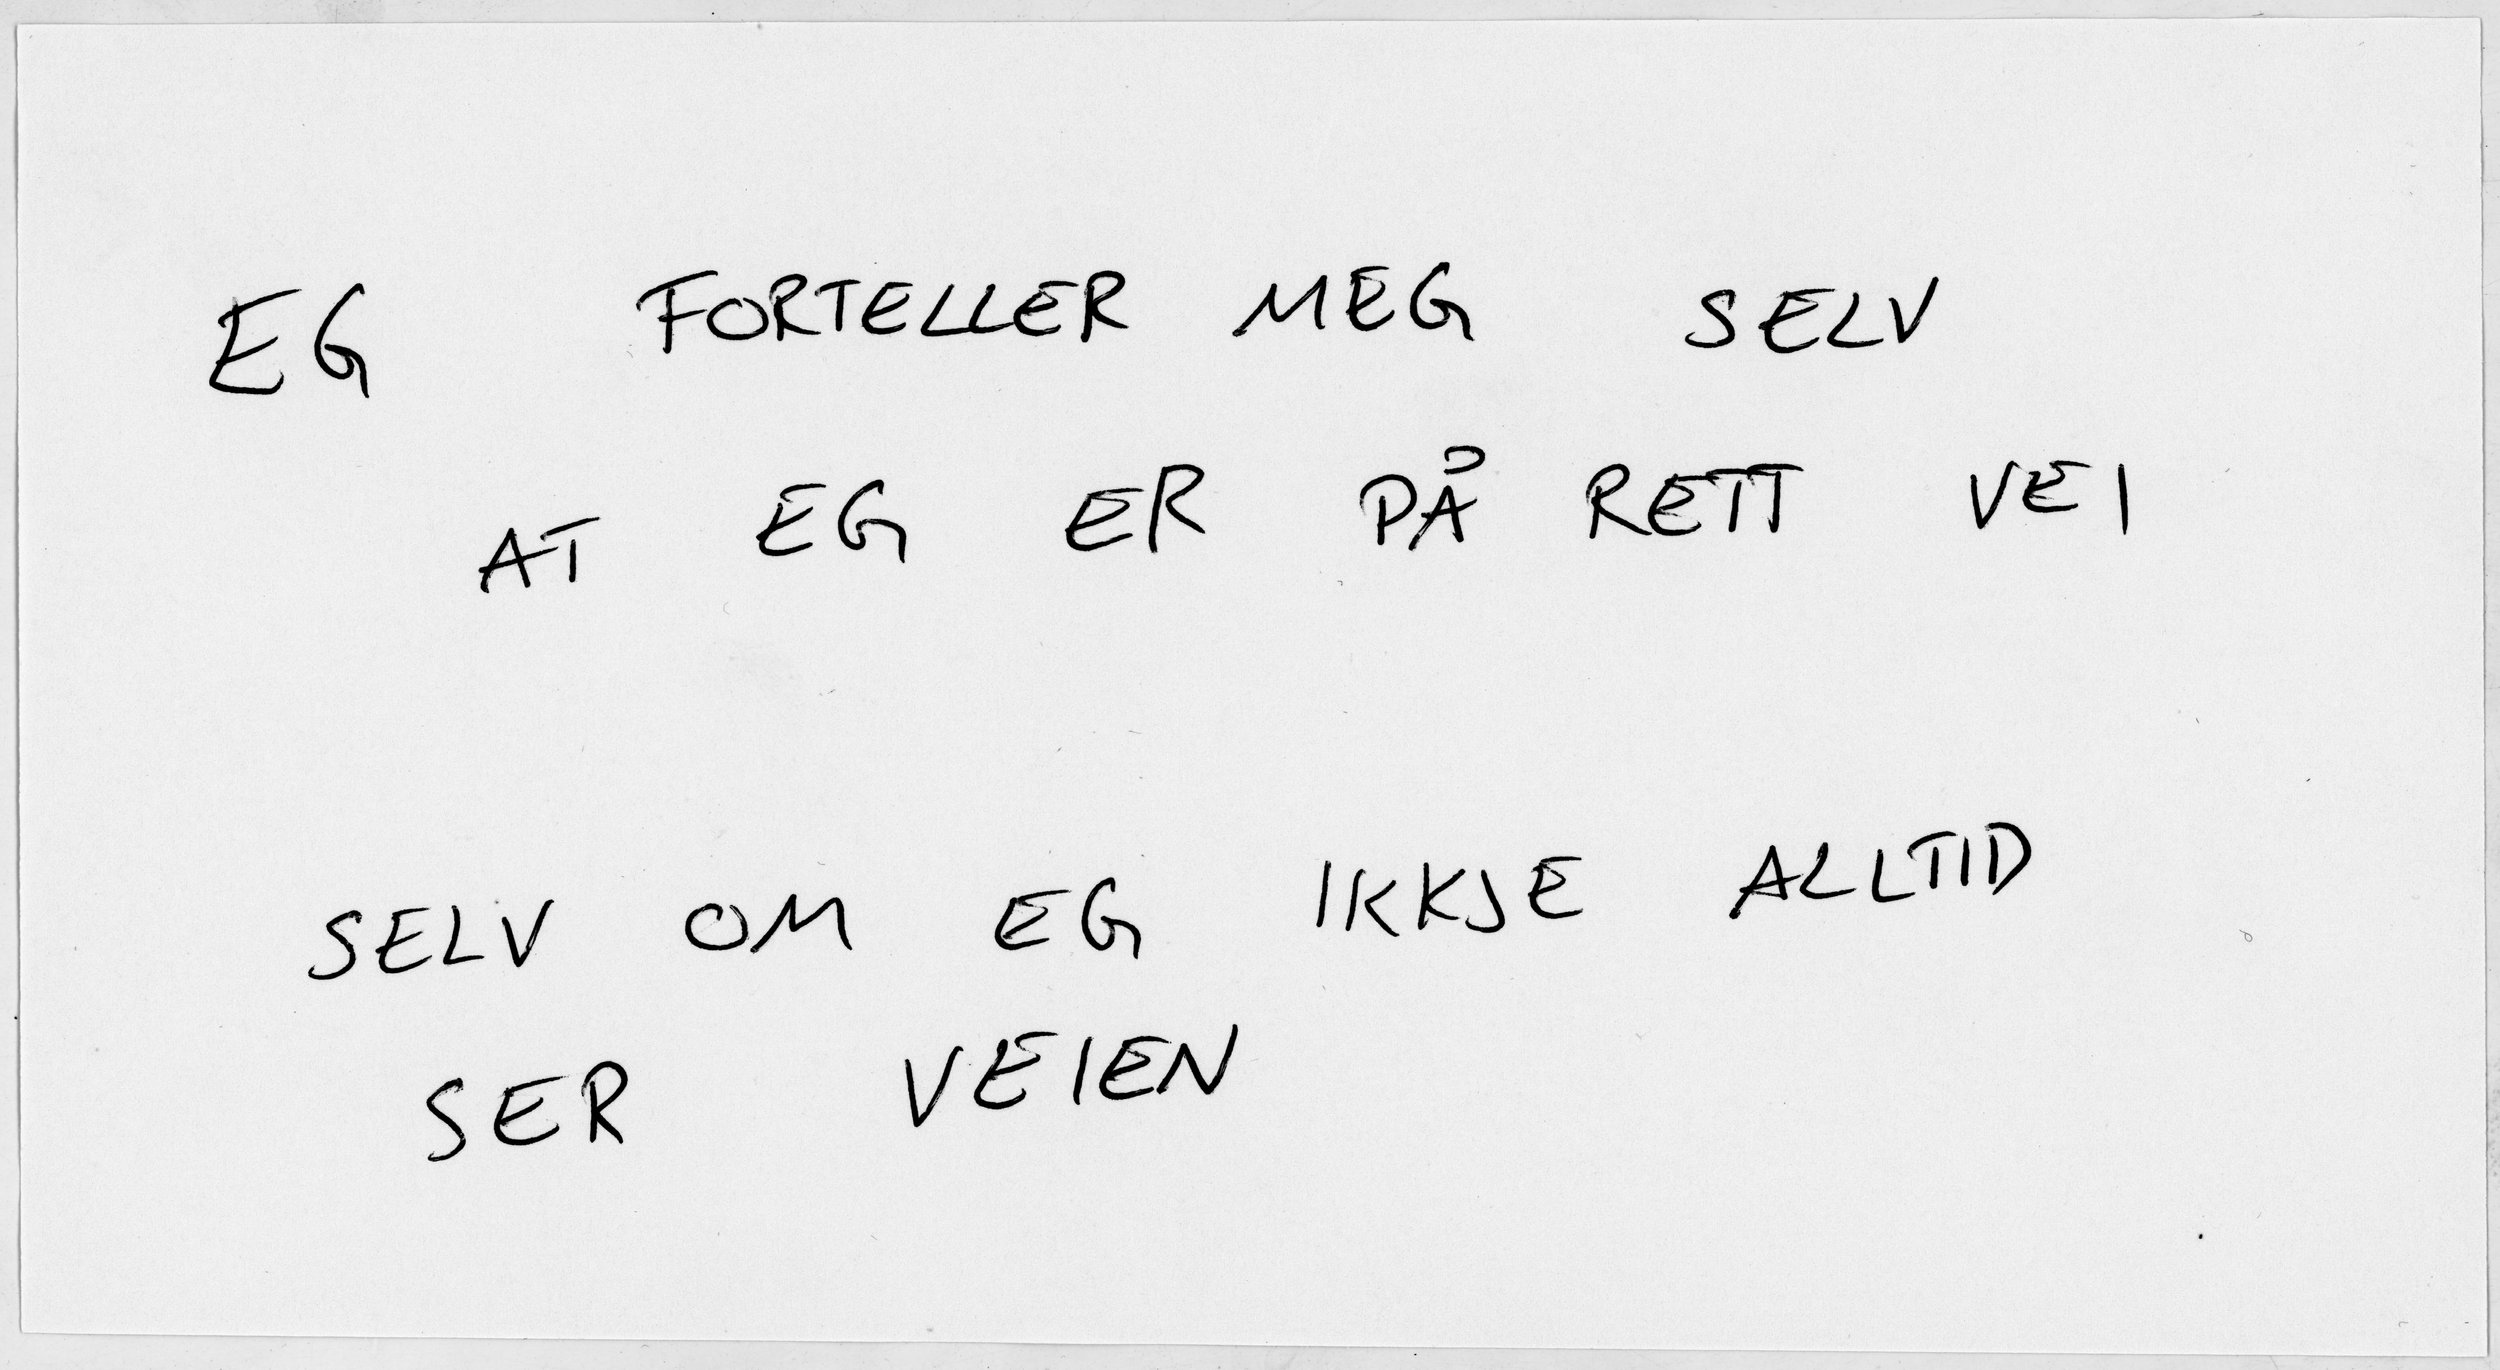 EG FORTELLER MEG SELV
AT EG ER PÅ RETT VEI
SELV OM EG IKKJE ALLTID
SER VEIEN